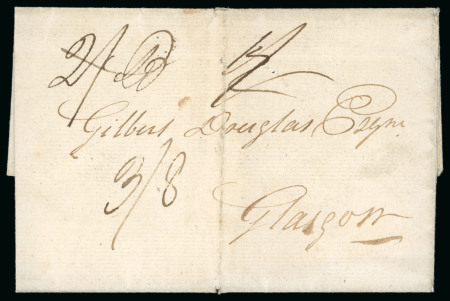 Gilbert Douglas Esqr.
3/8
Glasgow